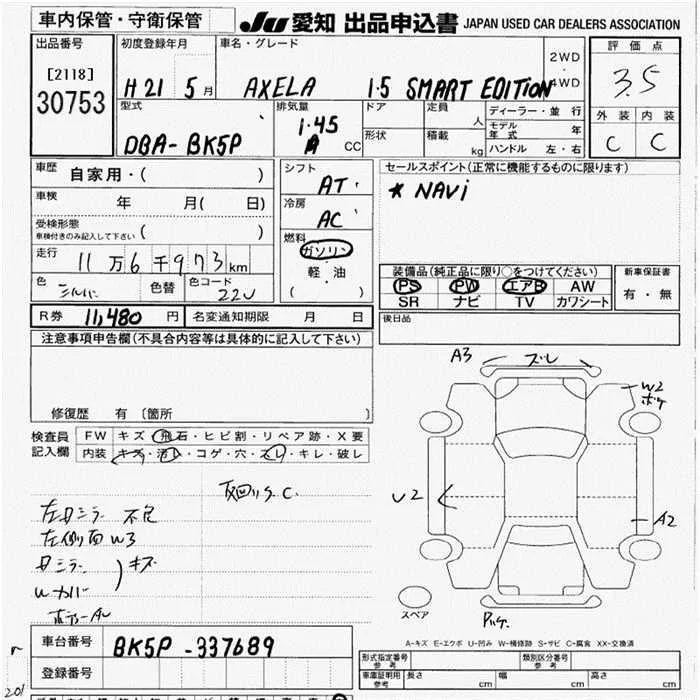 車内保管・守衛保管 JU 愛知 出品申込書 JAPAN USED CAR DEALERS ASSOCIATION
出品番号 初度登録年月 車名・グレード 2WD・4WD 評価点
[2118] 30753 H21 5月 AXELA 1.5 SMART EDITION 3.5
型式 排気量 ドア 定員 人 ディーラー・並行 外装 内装
DBA-BK5P 1.45 A CC 形状 積載 kg モデル年式 年 C C
ハンドル 左・右
車歴 自家用・( ) シフト AT セールスポイント(正常に機能するものに限ります)
車検 年 月( 日) 冷房 AC * NAVi
受検形態 車検付きのみ記入して下さい ( ) 燃料 ガソリン
走行 11万6千973km 軽・油 装備品(純正品に限り○をつけてください) 新車保証書
色 シルバー 色替 色コード 22V ( ) PS PW エアB AW 有・無
SR ナビ TV カワシート
R券 11,480円 名変通知期限 月 日 後日品
注意事項申告欄(不具合内容等は具体的に記入して下さい)
A3 ズレ
W2 ボケ
修復歴 有 [箇所 ]
検査員記入欄 FW キズ・飛石・ヒビ割・リペア跡・X要
内装 キズ・汚レ・コゲ・穴・スレ・キレ・破レ
U2 A2
左ドミラー 不良
左側面 W3
ドミラー キズ
Wカバー
スペア
A-キズ E-エクボ U-凹み W-補修跡 S-サビ C-腐食 XX-交換済
車台番号 BK5P-337689
形式指定番号 参考 類別区分番号 参考
登録番号 車庫証明用 参考 長さ cm 幅 cm 高さ cm
201